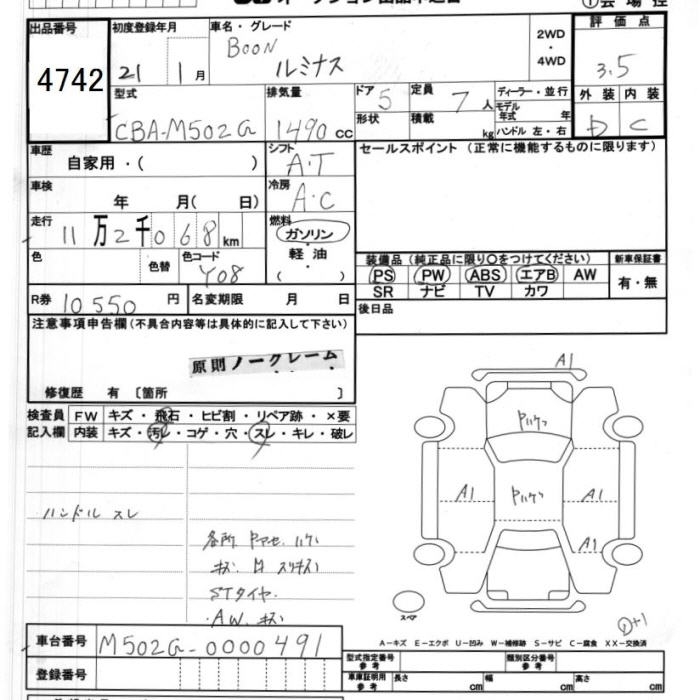 出品番号 初度登録年月 車名・グレード 2WD・4WD 評価点
4742 21 1月 BOON ルミナス 3.5
型式 排気量 ドア 5 定員 7人 ディーラー・並行 外装 内装
CBA-M502G 1490cc 形状 積載 kg モデル年式 年 ハンドル 左・右 D C
車歴 シフト セールスポイント (正常に機能するものに限ります)
自家用・( ) A・T
車検 冷房
年 月( 日) A・C
走行 燃料
11万2千068km ガソリン
色 色替 色コード 軽油
Y08 ( )
装備品 (純正品に限り○をつけてください) 新車保証書
PS PW ABS エアB AW 有・無
SR ナビ TV カワ
R券 10550円 名変期限 月 日 後日品
注意事項申告欄(不具合内容等は具体的に記入して下さい)
原則ノークレーム
修復歴 有 〔箇所 〕
検査員 FW キズ・飛石・ヒビ割・リペア跡・×要
記入欄 内装 キズ・汚レ・コゲ・穴・スレ・キレ・破レ
A1
ハンドル スレ
A1 A1
A1
各所
STタイヤ
AW. キズ
スペア
+1
A-キズ E-エクボ U-凹み W-補修跡 S-サビ C-腐食 XX-交換済
車台番号 M502G-0000491
型式指定番号 参考 類別区分番号 参考
登録番号
車庫証明用 参考 長さ cm 幅 cm 高さ cm